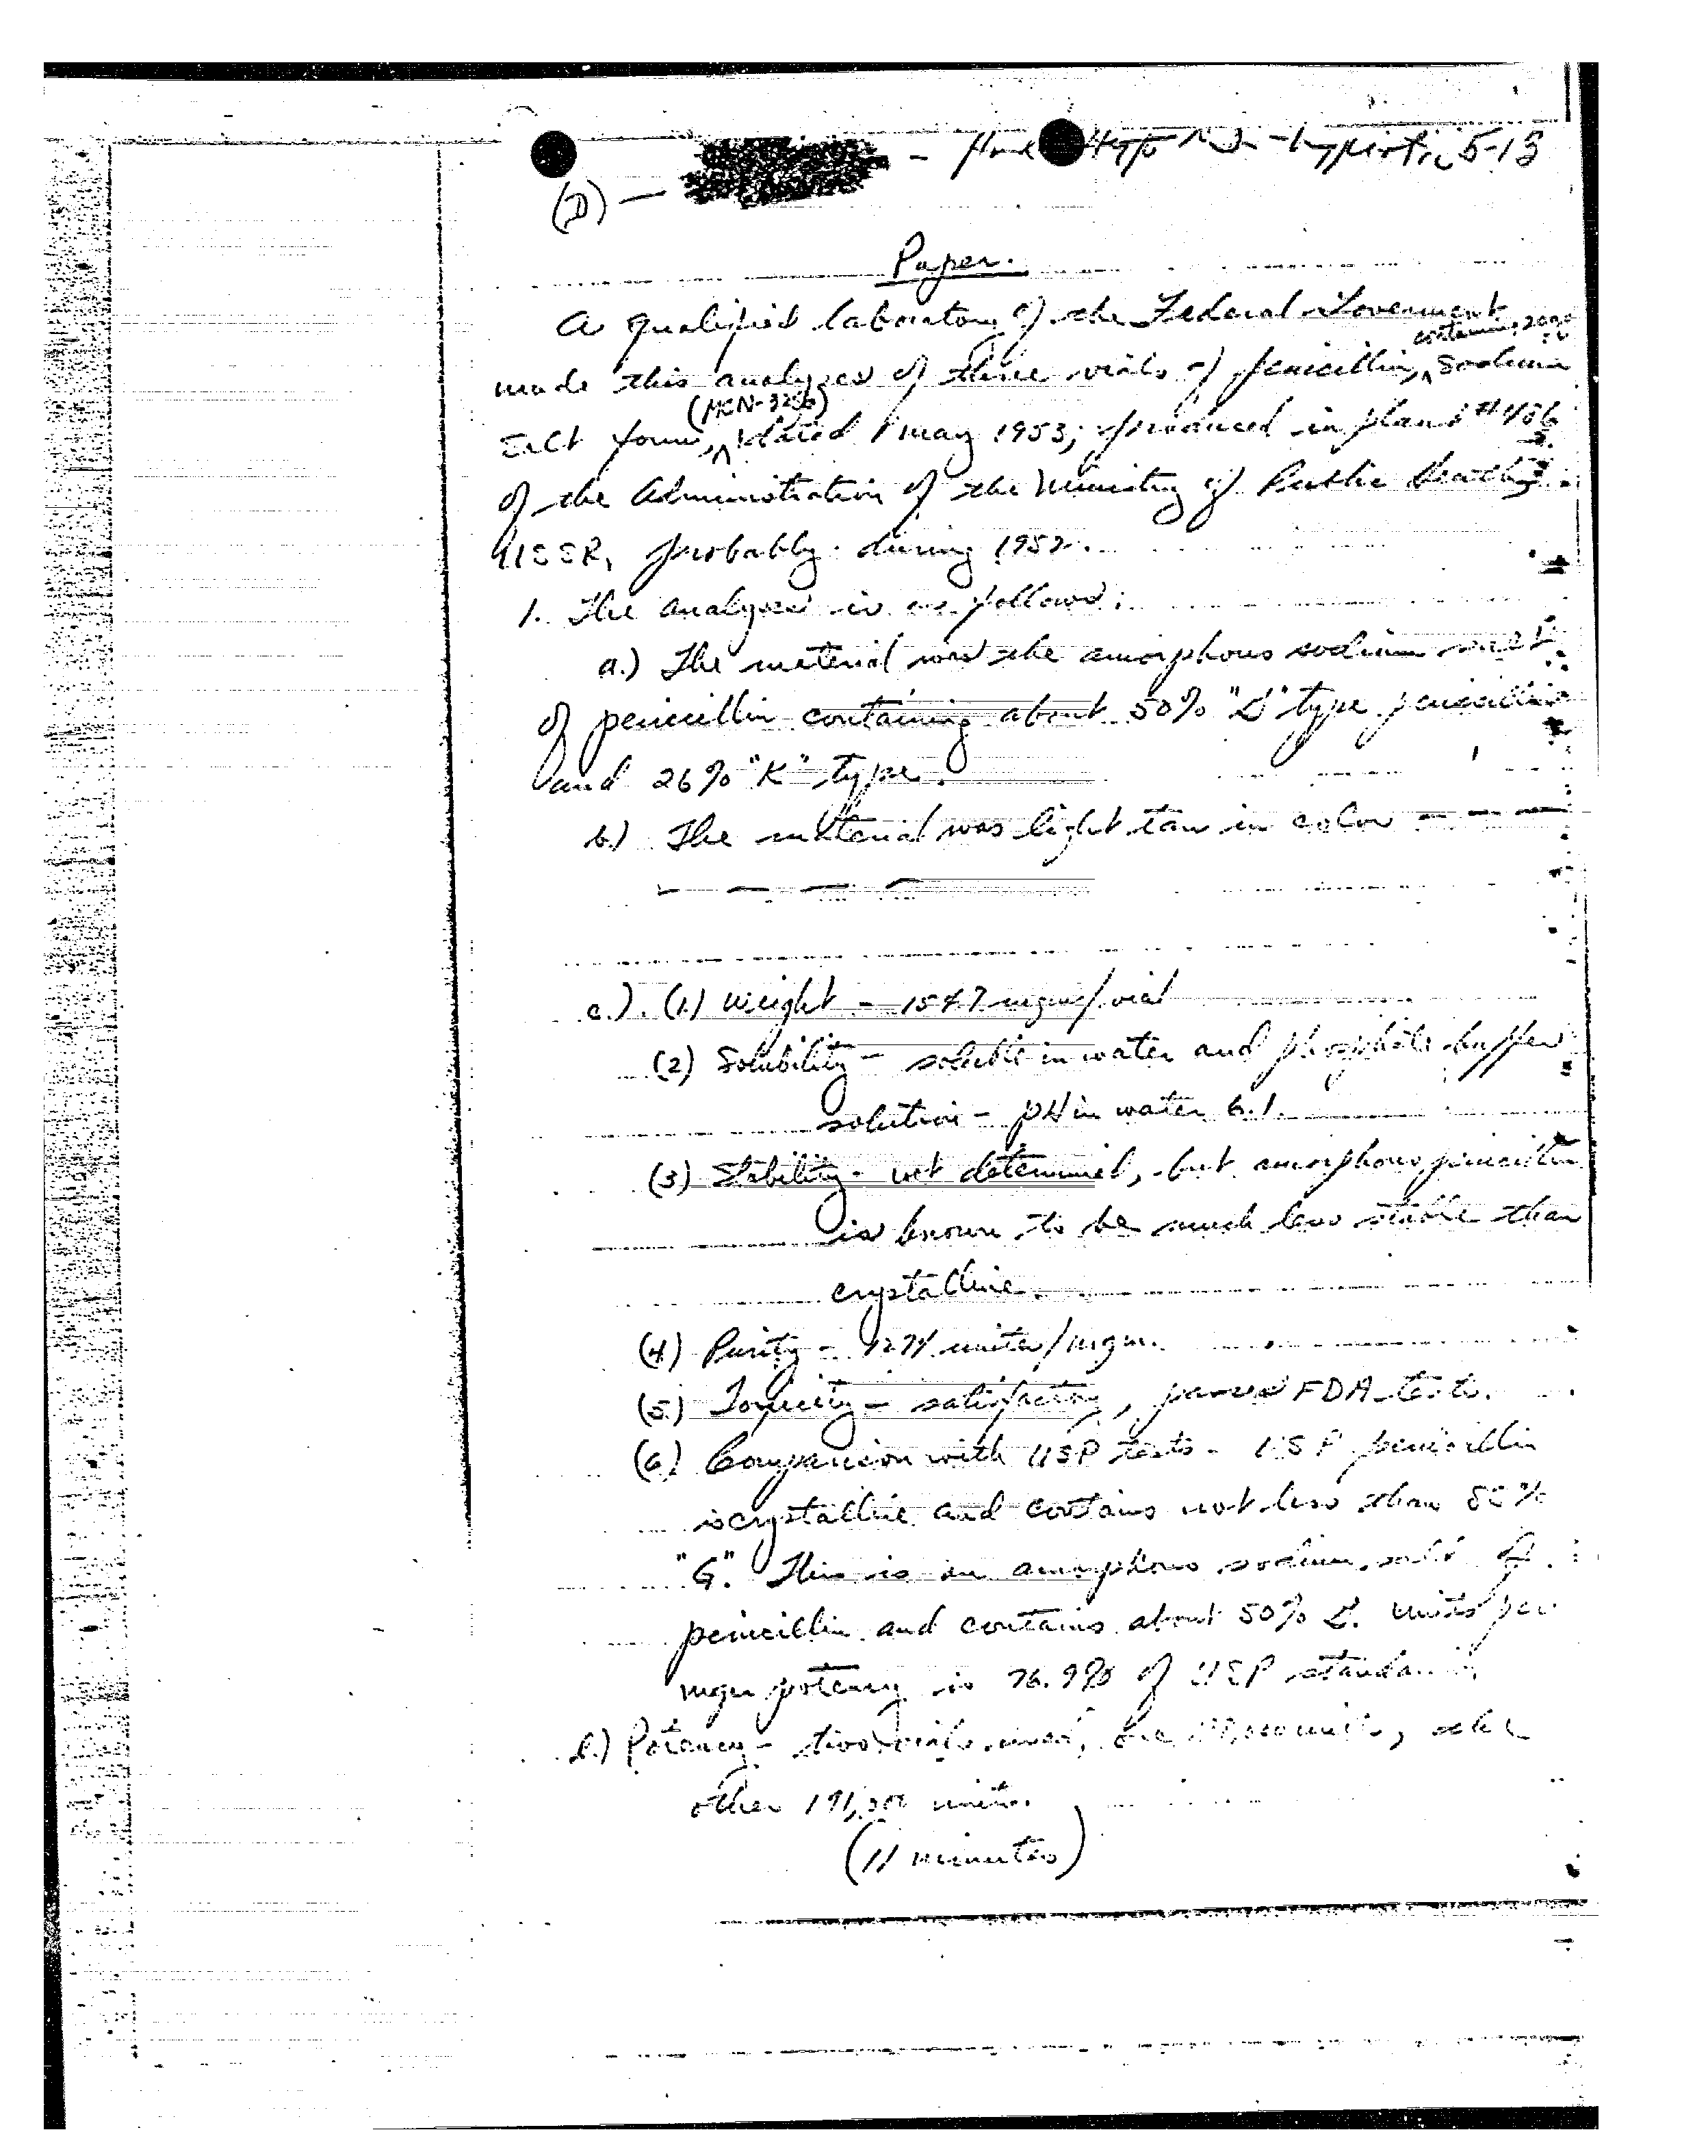 (D) —
5-13
Paper.
A qualified laboratory of the Federal Government
containing
made this analyses of three vials of penicillin, sodium
salt form, dated 1 May 1953, produced in plant
of the Administration of the Ministry of Public Health,
USSR, probably during 1952.
1. The analyses is as follows:
a.) The material was the amorphous sodium salt
of penicillin containing about 50% type penicillin
and 26% "K" type.
b.) The material was light tan in color - - -
- - - -
c.) (1) Weight - mgms/vial
(2) Solubility - soluble in water and phosphate buffer
solution - pH in water 6.1.
(3) Stability - not determined, but amorphous penicillin
is known to be much less stable than
crystalline.
(4) Purity - units/mgm.
(5) Toxicity - satisfactory, passes FDA tests.
(6) Comparison with USP tests - USP penicillin
is crystalline and contains not less than
"G". This is an amorphous sodium salt of
penicillin and contains about 50% units per
mgm potency is 76.9% of USP standard
Potency - two vials used, one units, the
other units.
(11 minutes)